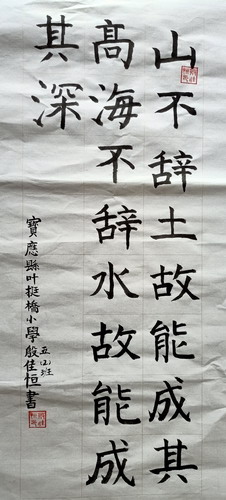 山不辞土故能成其
高海不辞水故能成
其深
寶應縣叶挺橋小學五(2)班殷佳恒書